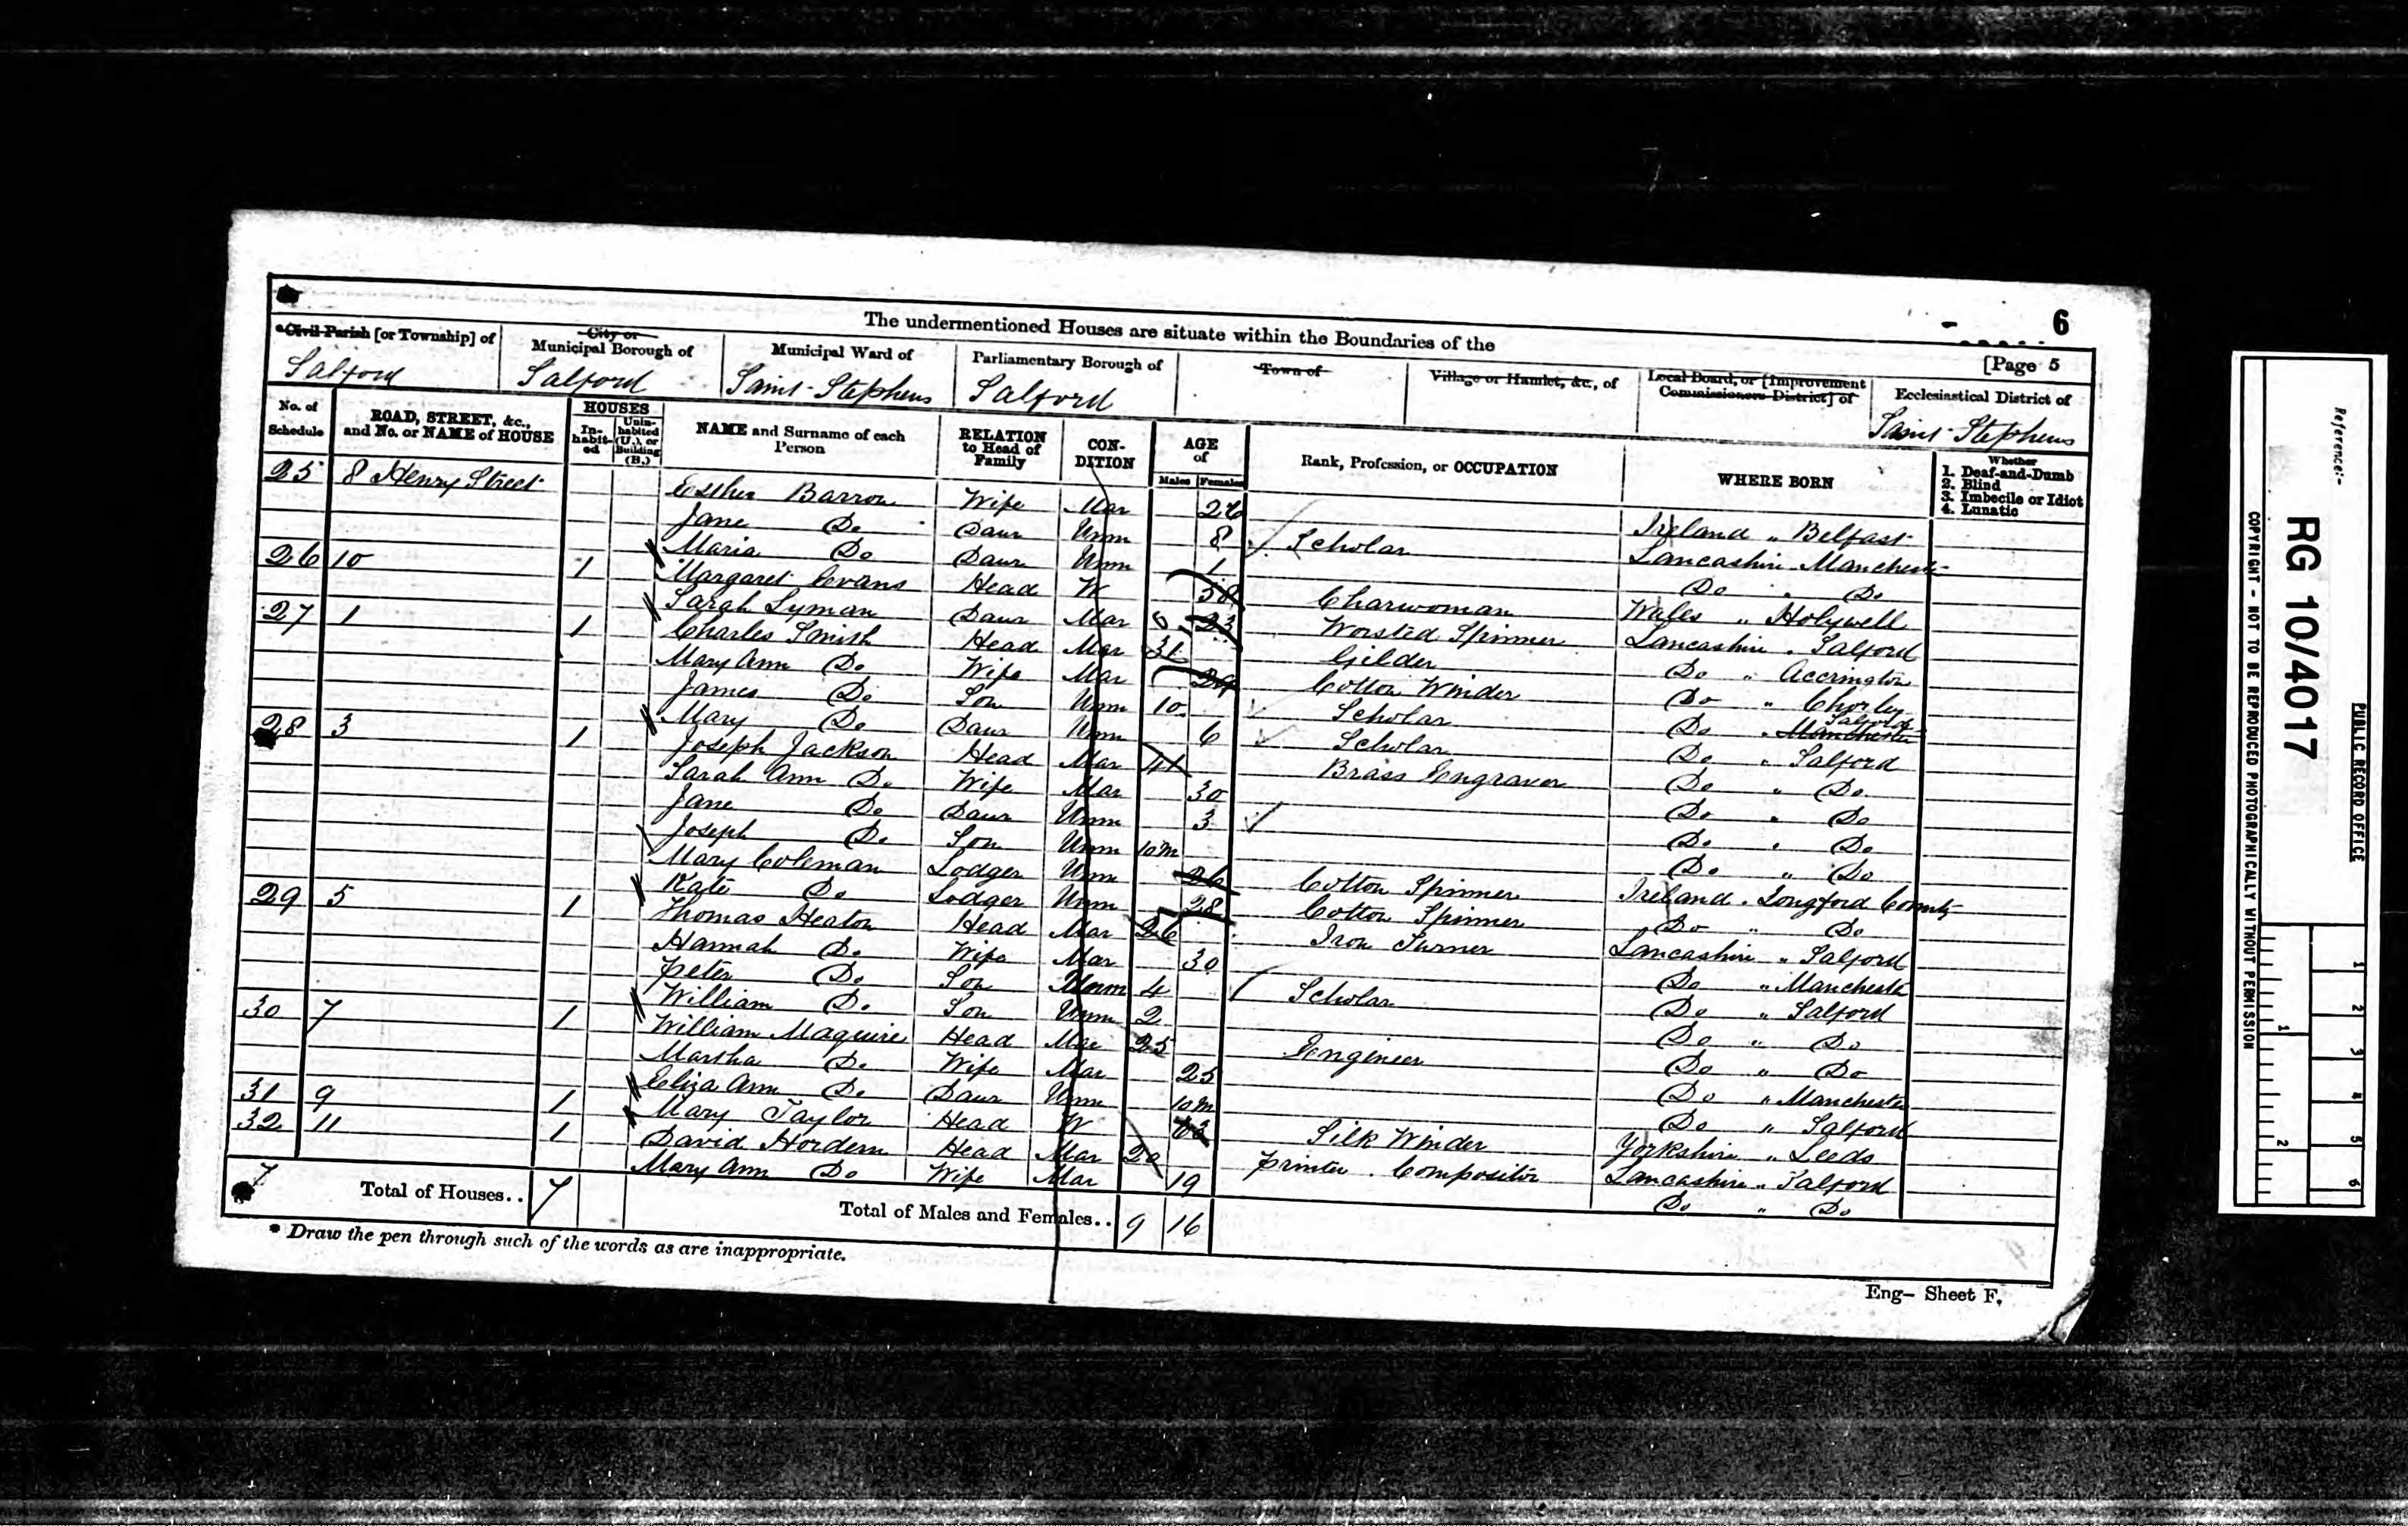 6
The undermentioned Houses are situate within the Boundaries of the
[Page 5
*Civil Parish [or Township] of
City or Municipal Borough of
Municipal Ward of
Parliamentary Borough of
Town of
Village or Hamlet, &c., of
Local Board, or [Improvement Commissioners District] of
Ecclesiastical District of
Salford Salford Saint Stephens Salford Saint Stephens
No. of Schedule
ROAD, STREET, &c., and No. or NAME of HOUSE
HOUSES
In-habit-ed
Unin-habited (U.), or Building (B.)
NAME and Surname of each Person
RELATION to Head of Family
CON-DITION
AGE of
Males Females
Rank, Profession, or OCCUPATION
WHERE BORN
Whether
1. Deaf-and-Dumb
2. Blind
3. Imbecile or Idiot
4. Lunatic
25 8 Henry Street Esther Barron Wife Mar 26 Ireland " Belfast
Jane Do Daur Unm 8 Scholar Lancashire Manchester
Maria Do Daur Unm 1 Do " Do
26 10 1 Margaret Evans Head W Charwoman Wales " Holywell
Sarah Lyman Daur Mar 23 Worsted Spinner Lancashire " Salford
27 1 1 Charles Smith Head Mar 31 Gilder Do " Accrington
Mary Ann Do Wife Mar Cotton Winder Do " Chorley
James Do Son Unm 10 Scholar Do " Manchester Salford
Mary Do Daur Unm 6 Scholar Do " Salford
28 3 1 Joseph Jackson Head Mar 41 Brass Engraver Do " Do
Sarah Ann Do Wife Mar 30 Do " Do
Jane Do Daur Unm 3 Do " Do
Joseph Do Son Unm 10m Do " Do
Mary Coleman Lodger Unm 26 Cotton Spinner Ireland " Longford County
Kate Do Lodger Unm 28 Cotton Spinner Do " Do
29 5 1 Thomas Heaton Head Mar 26 Iron Turner Lancashire " Salford
Hannah Do Wife Mar 30 Do " Manchester
Peter Do Son Unm 4 Scholar Do " Salford
William Do Son Unm 2 Do " Do
30 7 1 William Maguire Head Mar 25 Engineer Do " Do
Martha Do Wife Mar 25 Do " Manchester
Eliza Ann Do Daur Unm 10m Do " Salford
31 9 1 Mary Taylor Head W 62 Silk Winder Yorkshire " Leeds
32 11 1 David Hordern Head Mar 20 Printer . Compositor Lancashire " Salford
Mary Ann Do Wife Mar 19 Do " Do
7 Total of Houses.. 7 Total of Males and Females.. 9 16
* Draw the pen through such of the words as are inappropriate.
Eng- Sheet F.
Reference:-
RG 10/4017
PUBLIC RECORD OFFICE
COPYRIGHT - NOT TO BE REPRODUCED PHOTOGRAPHICALLY WITHOUT PERMISSION
1 2 3 4 5 6
1 2